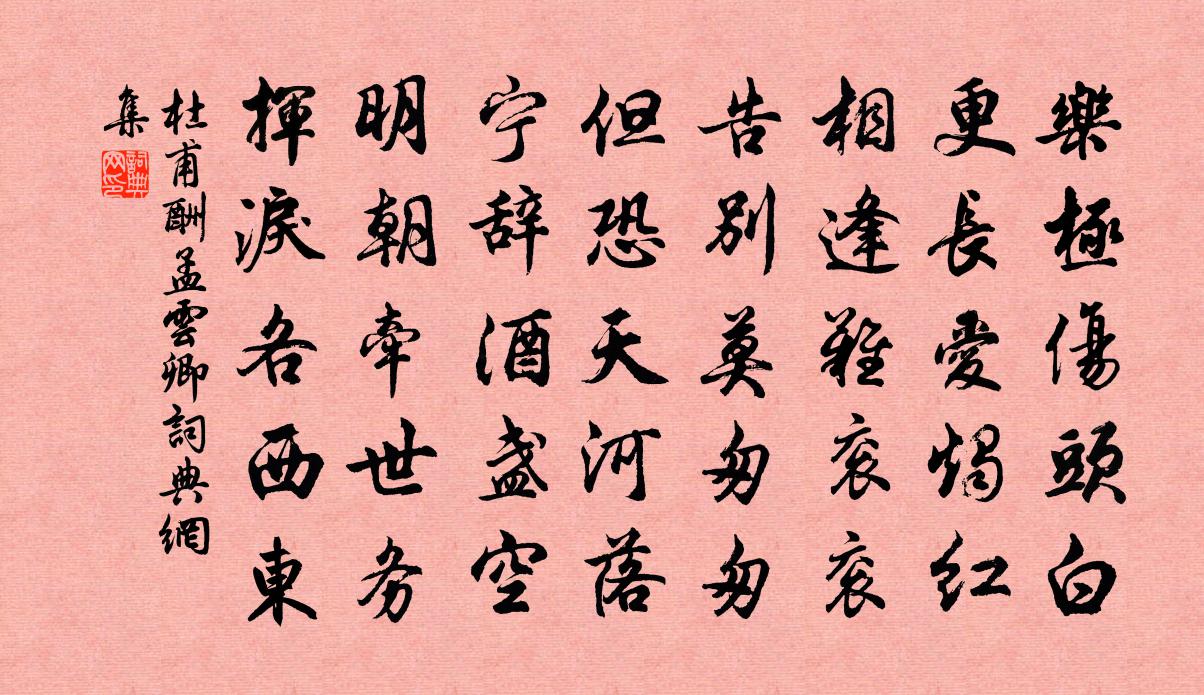 樂極傷頭白
更長愛燭紅
相逢難衮衮
告別莫匆匆
但恐天河落
宁辞酒盞空
明朝牽世务
揮淚各西東
杜甫酬孟雲卿詞典網
集
詞典網印